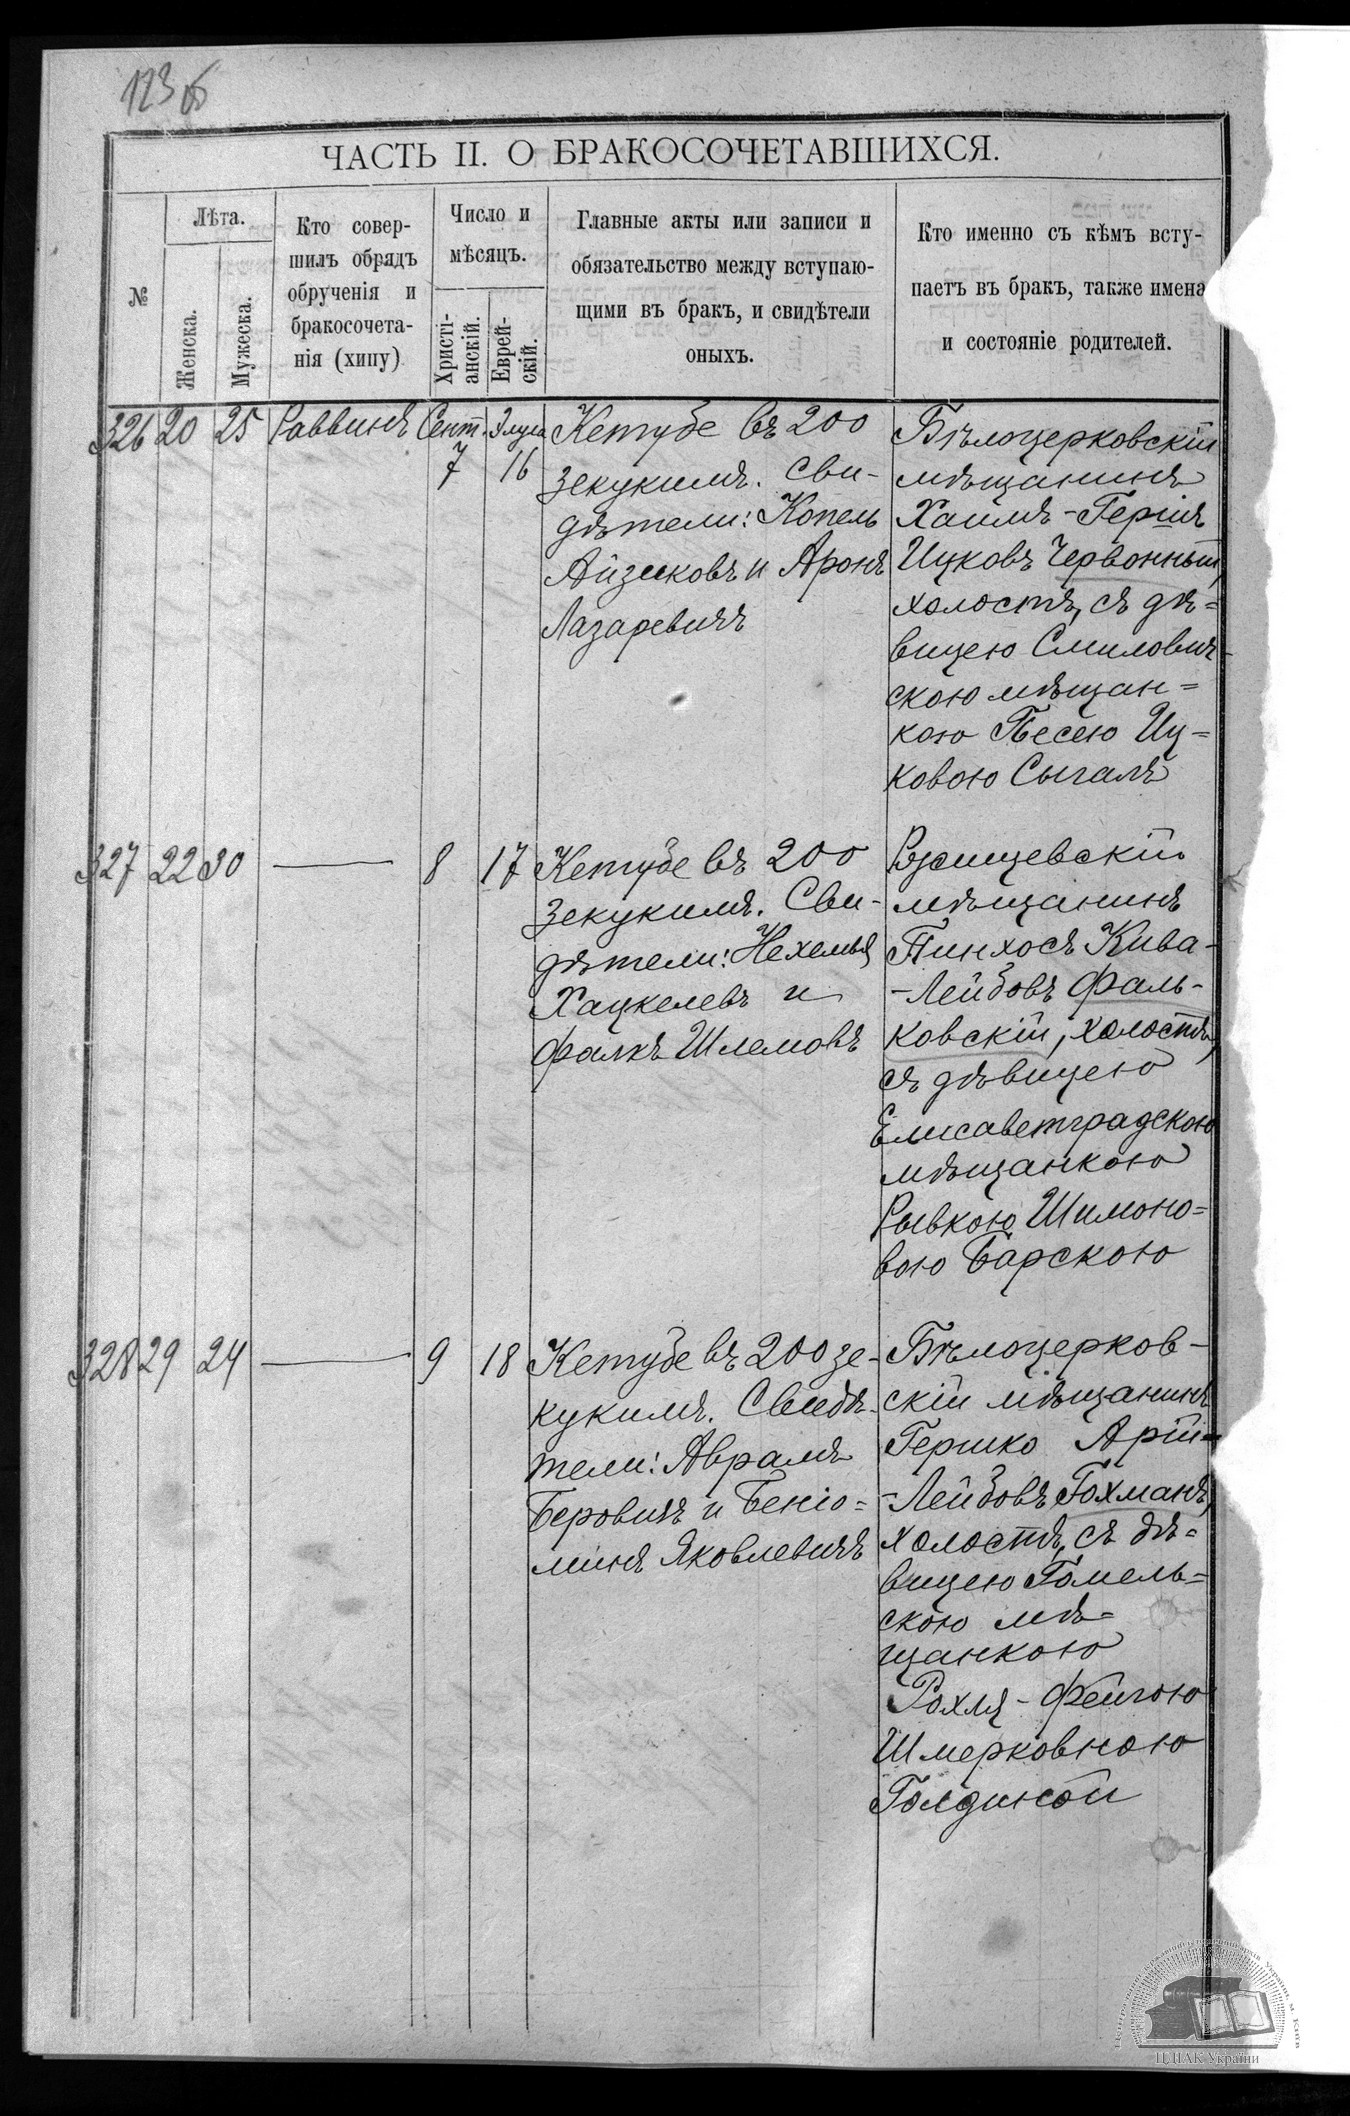 123 об
ЧАСТЬ II. О БРАКОСОЧЕТАВШИХСЯ.
№
Лѣта.
Женска.
Мужеска.
Кто совер-
шилъ обрядъ
обрученія и
бракосочета-
нія (хипу)
Число и
мѣсяцъ.
Христі-
анскій.
Еврей-
скій.
Главные акты или записи и
обязательство между вступаю-
щими въ бракъ, и свидѣтели
оныхъ.
Кто именно съ кѣмъ всту-
паетъ въ бракъ, также имена
и состояніе родителей.
326 20 25 Раввинъ Сент. 7 Элула 16
Кетубе въ 200
зекукимъ. Сви-
дѣтели: Копель
Айзиковъ и Аронъ
Лазаревичъ
Бѣлоцерковскій
мѣщанинъ
Хаимъ-Гершъ
Ицковъ Червонный,
холостъ, съ дѣ=
вицею Смилович-
скою мѣщан=
кою Песею Иц=
ковою Сигалъ
327 22 30 — 8 17
Кетубе въ 200
зекукимъ. Сви-
дѣтели: Нехемья
Хацкелевъ и
Фалкъ Шлемовъ
Ржищевскій
мѣщанинъ
Пинхосъ Кива-
-Лейбовъ Фаль-
ковскій, холостъ,
съ дѣвицею
Елисаветградскою
мѣщанкою
Рывкою Шимоно=
вою Барскою
328 29 24 — 9 18
Кетубе въ 200 зе-
кукимъ. Свидѣ-
тели: Аврамъ
Беровичъ и Беніо=
минъ Яковлевичъ
Бѣлоцерков-
скій мѣщанинъ
Гершко Арій-
-Лейбовъ Гохманъ,
холостъ, съ дѣ=
вицею Гомель=
скою мѣ=
щанкою
Рохля-Фейгою
Шмерковною
Голдиной
ЦДІАК України